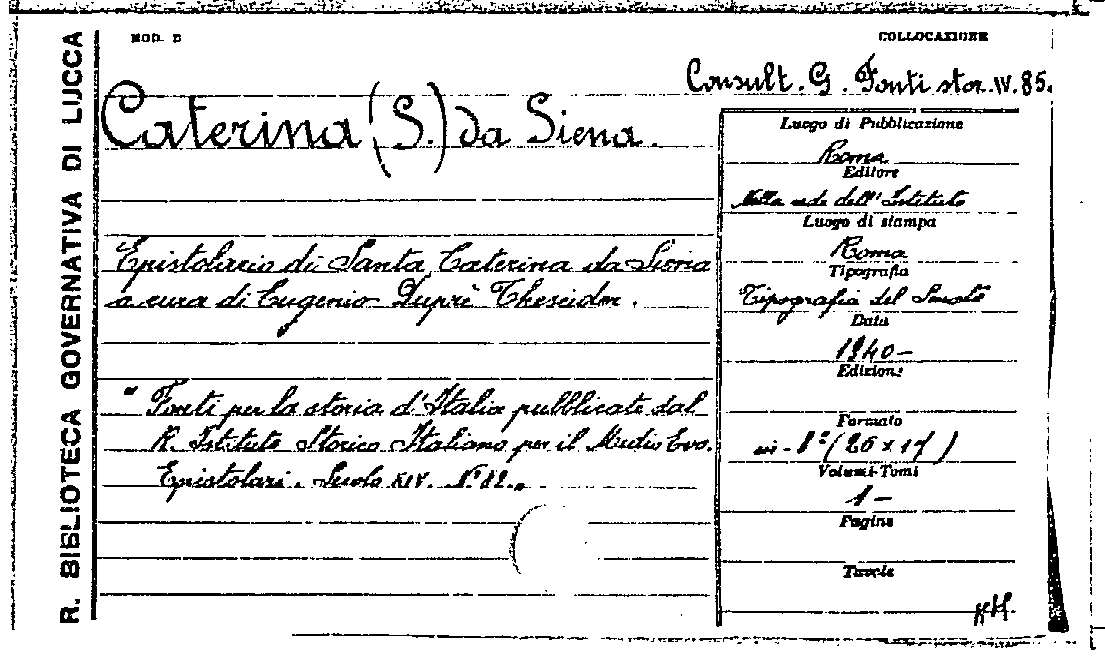 R. BIBLIOTECA GOVERNATIVA DI LUCCA
MOD. D
COLLOCAZIONE
Consult. G. Fonti stor. IV. 85.
Caterina (S.) da Siena.
Epistolario di Santa Caterina da Siena
a cura di Eugenio Duprè Theseider.
" Fonti per la storia d'Italia pubblicate dal
R. Istituto Storico Italiano per il Medio Evo.
Epistolari. Secolo XIV. N° 82. "
Luogo di Pubblicazione
Roma
Editore
Nella sede dell'Istituto
Luogo di stampa
Roma
Tipografia
Tipografia del Senato
Data
1940-
Edizione
Formato
in-8° (26 x 17)
Volumi-Tomi
1-
Pagine
Tavole